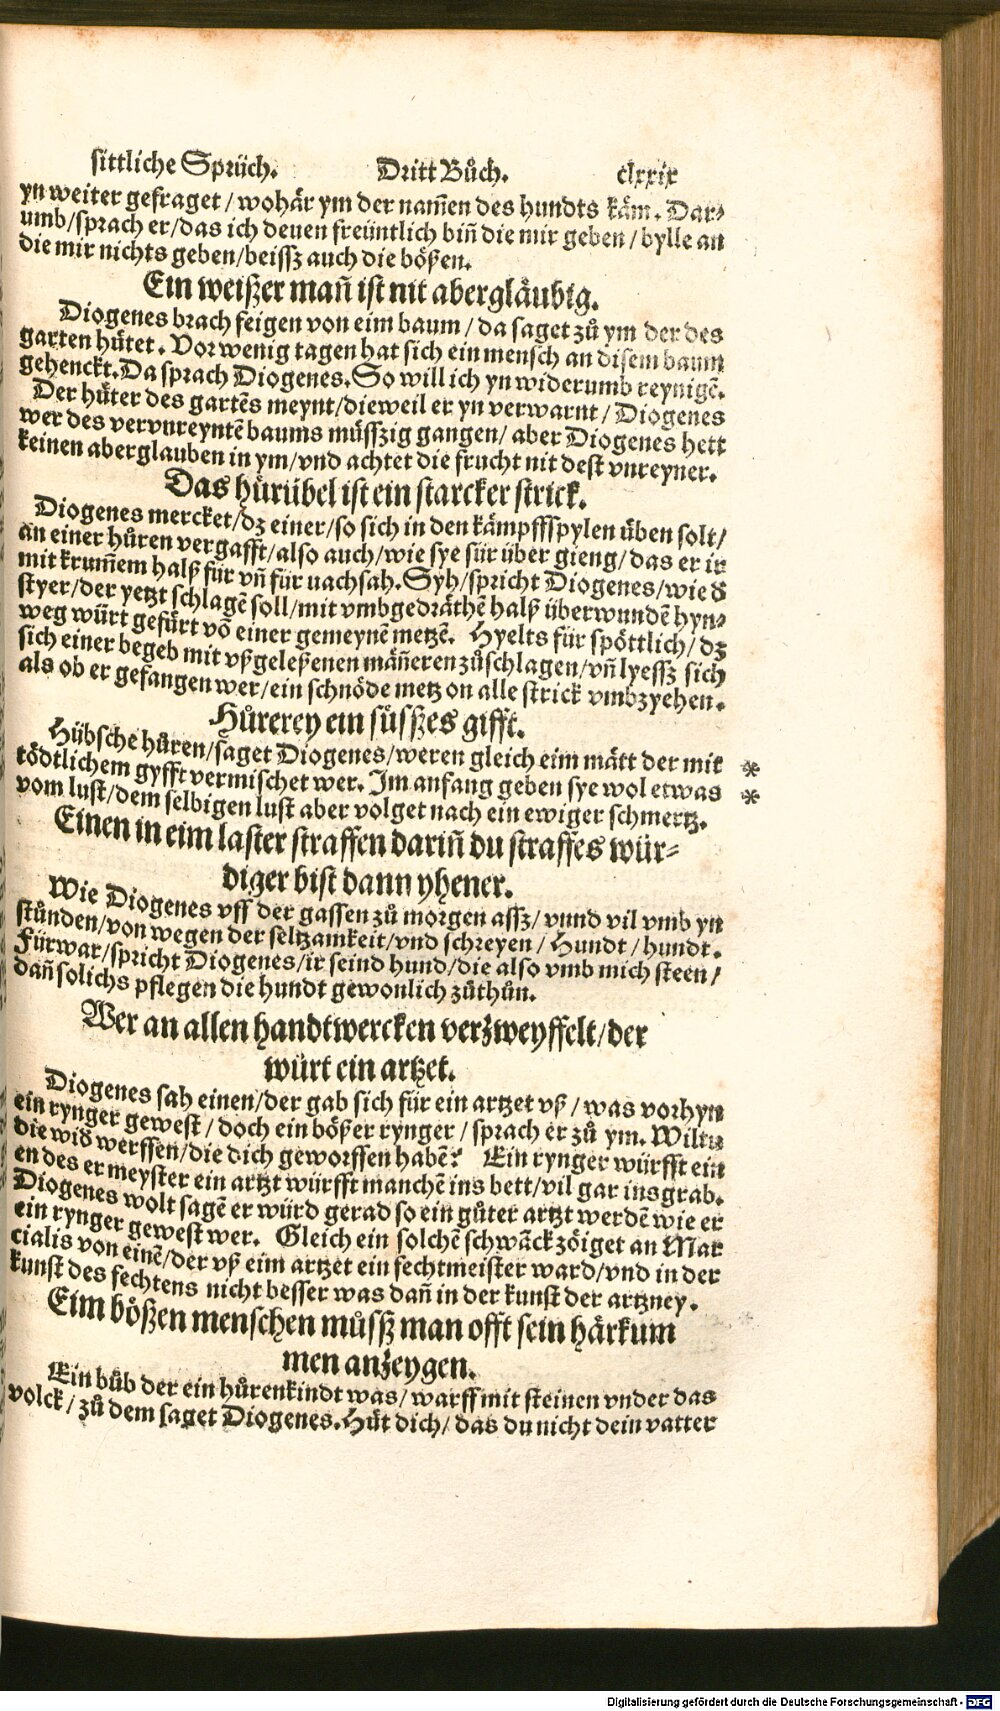 sittliche Sprüch. Dritt Bůch. clxxix
yn weiter gefraget / wohär ym der nam̃en des hundts käm. Dar⸗
umb / sprach er / das ich denen freüntlich bin̄ die mir geben / bylle an
die mir nichts geben / beissz auch die bößen.
Ein weißer man̄ ist nit abergläubig.
Diogenes brach feigen von eim baum / da saget zů ym der des
garten hütet. Vor wenig tagen hat sich ein mensch an disem baum
gehenckt. Da sprach Diogenes. So will ich yn widerumb reynigē.
Der hüter des gartēs meynt / dieweil er yn verwarnt / Diogenes
wer des vervnreyntē baums müssszig gangen / aber Diogenes hett
keinen aberglauben in ym / vnd achtet die frucht nit dest vnreyner.
Das hürübel ist ein starcker strick.
Diogenes mercket / dz einer / so sich in den kämpffspylen üben solt /
an einer hůren vergafft / also auch / wie sye für über gieng / das er ir
mit krum̄em halß für vn̄ für nachsah. Syh / spricht Diogenes / wie d̕
styer / der yetzt schlagē soll / mit vmbgedräthē halß überwundē hyn⸗
weg würt gefürt vō einer gemeynē metzē. Hyelts für spöttlich / dz
sich einer begeb mit vßgeleßenen män̄eren zůschlagen / vn̄ lyessz sich
als ob er gefangen wer / ein schnöde metz on alle strick vmbzyehen.
Hůrerey ein süsßes gifft.
Hübsche hůren / saget Diogenes / weren gleich eim mätt der mit *
tödtlichem gyfft vermischet wer. Im anfang geben sye wol etwas *
vom lust / dem selbigen lust aber volget nach ein ewiger schmertz.
Einen in eim laster straffen darin̄ du straffes wür⸗
diger bist dann yhener.
Wie Diogenes vff der gassen zů morgen assz / vnnd vil vmb yn
stůnden / von wegen der seltzamkeit / vnd schreyen / Hundt / hundt.
Fürwar / spricht Diogenes / ir seind hund / die also vmb mich steen /
dan̄ solichs pflegen die hundt gewonlich zůthůn.
Wer an allen handtwercken verzweyffelt / der
würt ein artzet.
Diogenes sah einen / der gab sich für ein artzet vß / was vorhyn
ein rynger gewest / doch ein bößer rynger / sprach er zů ym. Wiltu
die wid̕ werffen / die dich geworffen habē? Ein rynger würfft ein
en des er meyster ein artzt würfft manchē ins bett / vil gar ins grab.
Diogenes wolt sagē er würd gerad so ein gůter artzt werdē wie er
ein rynger gewest wer. Gleich ein solchē schwāck zöiget an Mar
cialis von einē / der vß eim artzet ein fechtmeister ward / vnd in der
kunst des fechtens nicht besser was dan̄ in der kunst der artzney.
Eim bößen menschen můsß man offt sein härkum
men anzeygen.
Ein bůb der ein hůrenkindt was / warff mit steinen vnder das
volck / zů dem saget Diogenes. Hüt dich / das du nicht dein vatter
Digitalisierung gefördert durch die Deutsche Forschungsgemeinschaft - DFG